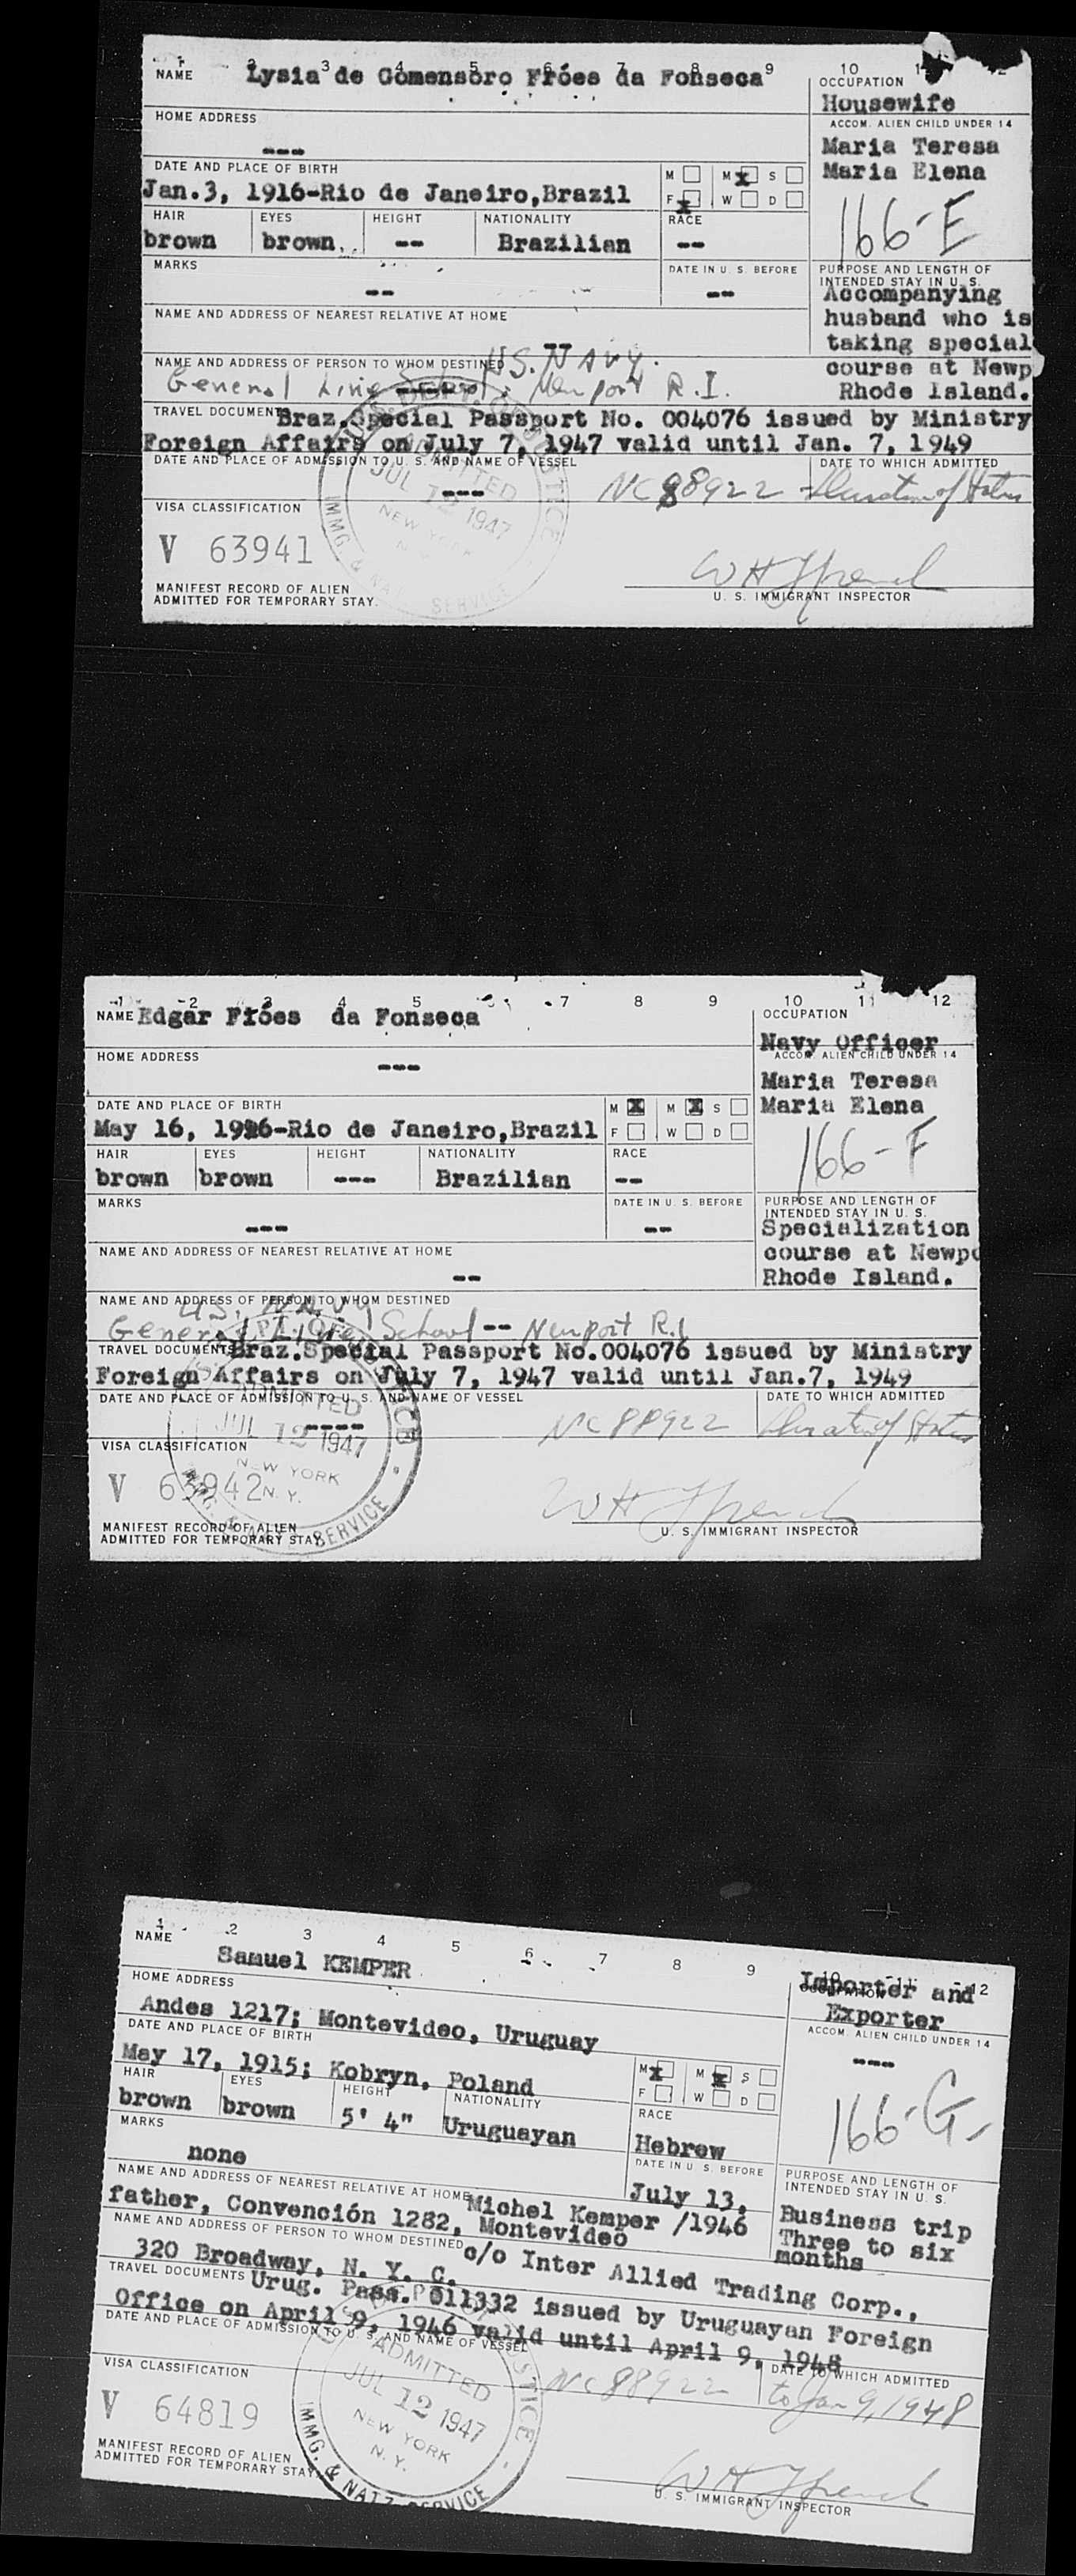 1 2 3 4 5 6 7 8 9 10 11 12
NAME Lysia de Gomensoro Fróes da Fonseca
OCCUPATION
Housewife
HOME ADDRESS
---
ACCOM. ALIEN CHILD UNDER 14
Maria Teresa
Maria Elena
DATE AND PLACE OF BIRTH
Jan.3, 1916-Rio de Janeiro,Brazil
M M X S
F X W D
166-E
HAIR EYES HEIGHT NATIONALITY RACE
brown brown -- Brazilian --
MARKS
--
DATE IN U. S. BEFORE
--
PURPOSE AND LENGTH OF
INTENDED STAY IN U. S.
Accompanying
husband who is
taking special
course at Newp
Rhode Island.
NAME AND ADDRESS OF NEAREST RELATIVE AT HOME
--
NAME AND ADDRESS OF PERSON TO WHOM DESTINED
U.S. NAVY.
General Line School; Newport R.I.
TRAVEL DOCUMENTS Braz.Special Passport No. 004076 issued by Ministry
Foreign Affairs on July 7, 1947 valid until Jan. 7, 1949
DATE AND PLACE OF ADMISSION TO U. S. AND NAME OF VESSEL
---
NC 88922
DATE TO WHICH ADMITTED
Duration of Status
U.S. DEPT. OF JUSTICE
ADMITTED
JUL 12 1947
NEW YORK
N.Y.
IMMG. & NATZ. SERVICE
VISA CLASSIFICATION
V 63941
W H French
MANIFEST RECORD OF ALIEN
ADMITTED FOR TEMPORARY STAY.
U. S. IMMIGRANT INSPECTOR
1 2 3 4 5 6 7 8 9 10 11 12
NAME Edgar Fróes da Fonseca
OCCUPATION
Navy Officer
HOME ADDRESS
---
ACCOM. ALIEN CHILD UNDER 14
Maria Teresa
Maria Elena
DATE AND PLACE OF BIRTH
May 16, 1916-Rio de Janeiro,Brazil
M X M X S
F W D
166-F
HAIR EYES HEIGHT NATIONALITY RACE
brown brown --- Brazilian --
MARKS
---
DATE IN U. S. BEFORE
--
PURPOSE AND LENGTH OF
INTENDED STAY IN U. S.
Specialization
course at Newpo
Rhode Island.
NAME AND ADDRESS OF NEAREST RELATIVE AT HOME
--
NAME AND ADDRESS OF PERSON TO WHOM DESTINED
U.S. NAVY
General Line School -- Newport R.I
TRAVEL DOCUMENTS Braz.Special Passport No.004076 issued by Ministry
Foreign Affairs on July 7, 1947 valid until Jan.7, 1949
DATE AND PLACE OF ADMISSION TO U. S. AND NAME OF VESSEL
----
NC 88922
DATE TO WHICH ADMITTED
Duration of Status
ADMITTED
JUL 12 1947
NEW YORK
N.Y.
IMMG. & NATZ. SERVICE
VISA CLASSIFICATION
V 63942
W H French
MANIFEST RECORD OF ALIEN
ADMITTED FOR TEMPORARY STAY.
U. S. IMMIGRANT INSPECTOR
1 2 3 4 5 6 7 8 9 10 11 12
NAME
Samuel KEMPER
OCCUPATION
Importer and
Exporter
HOME ADDRESS
Andes 1217; Montevideo, Uruguay
ACCOM. ALIEN CHILD UNDER 14
---
DATE AND PLACE OF BIRTH
May 17, 1915; Kobryn, Poland
M X M X S
F W D
166-G-
HAIR EYES HEIGHT NATIONALITY RACE
brown brown 5' 4" Uruguayan Hebrew
MARKS
none
DATE IN U. S. BEFORE
July 13,
/1946
PURPOSE AND LENGTH OF
INTENDED STAY IN U. S.
Business trip
Three to six
months
NAME AND ADDRESS OF NEAREST RELATIVE AT HOME Michel Kemper
father, Convención 1282, Montevideo
NAME AND ADDRESS OF PERSON TO WHOM DESTINED c/o Inter Allied Trading Corp.,
320 Broadway, N. Y. C.
TRAVEL DOCUMENTS Urug. Pass. 011332 issued by Uruguayan Foreign
Office on April 9, 1946 valid until April 9, 1948
DATE AND PLACE OF ADMISSION TO U. S. AND NAME OF VESSEL
NC 88922
DATE TO WHICH ADMITTED
to Jan 9, 1948
ADMITTED
JUL 12 1947
NEW YORK
N.Y.
IMMG. & NATZ. SERVICE
VISA CLASSIFICATION
V 64819
W H French
MANIFEST RECORD OF ALIEN
ADMITTED FOR TEMPORARY STAY.
U. S. IMMIGRANT INSPECTOR